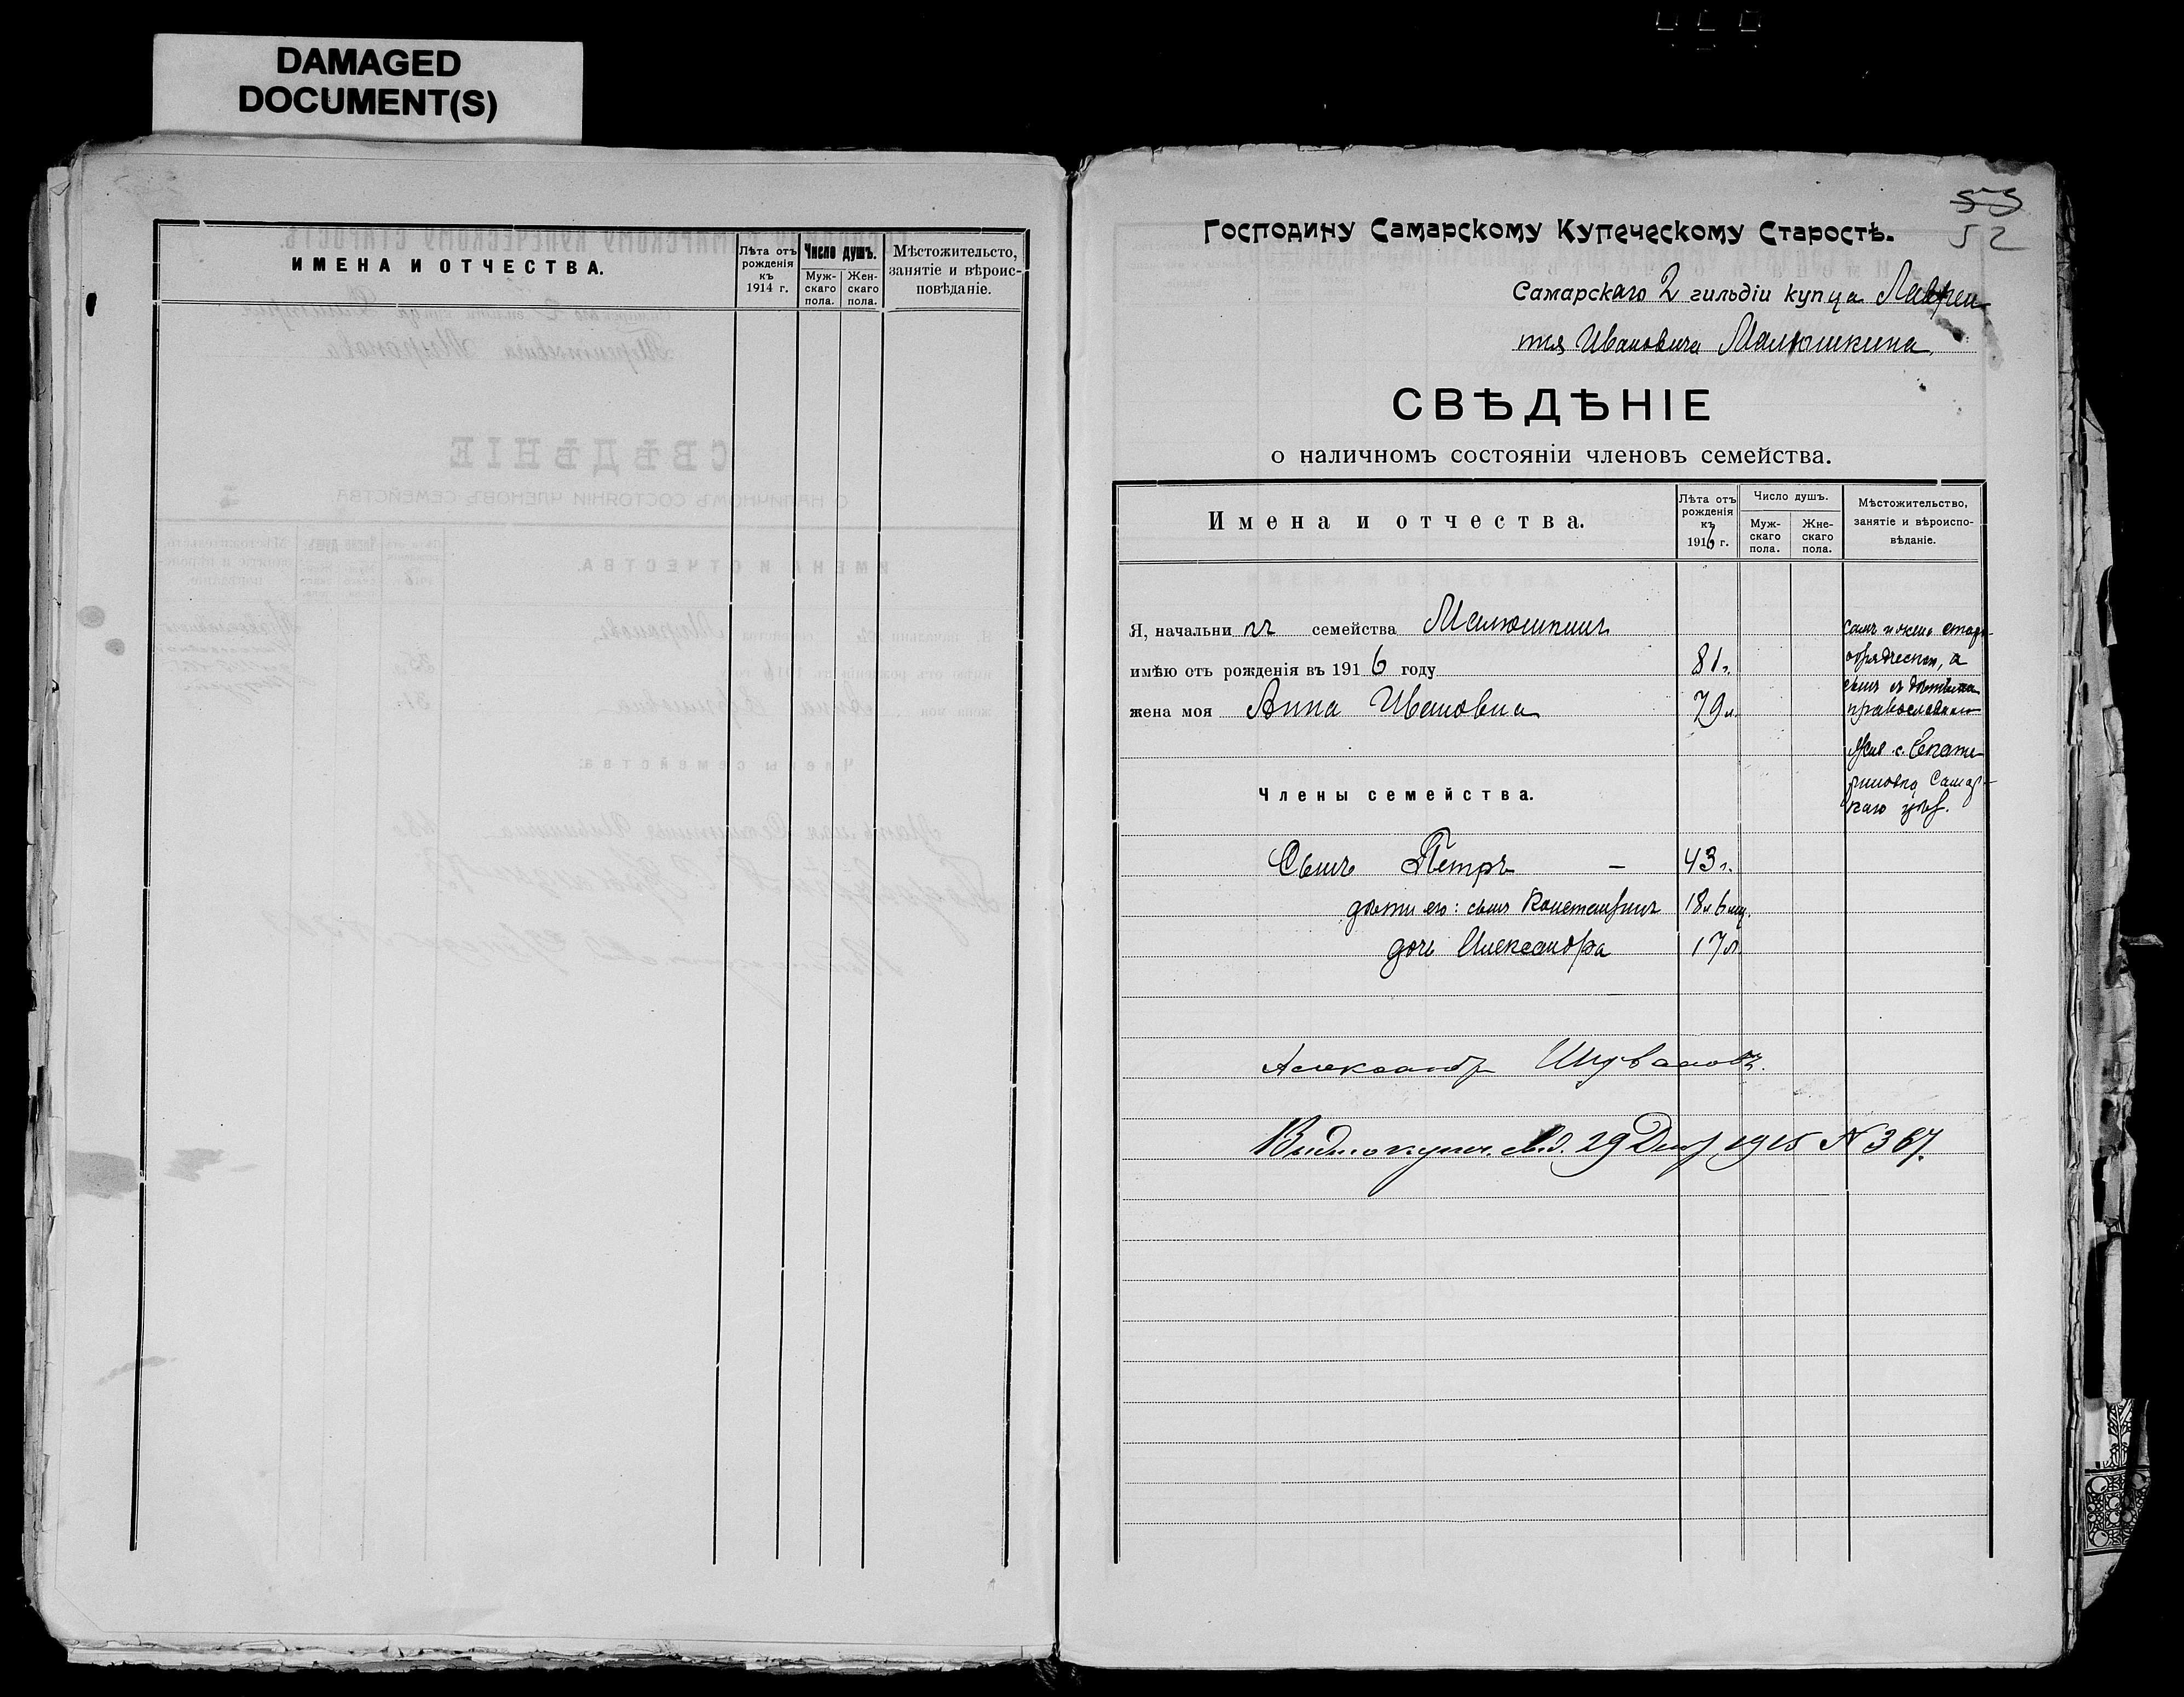 DAMAGED
DOCUMENT(S)
ИМЕНА И ОТЧЕСТВА.
Лѣта отъ рожденія къ 1914 г.
Число душъ.
Мужскаго пола.
Женскаго пола.
Мѣстожительсто, занятіе и вѣроисповѣданіе.
55
52
Господину Самарскому Купеческому Старостѣ.
Самарскаго 2 гильдіи купца Лаврен-
тія Ивановича Малюшкина
СВѢДѢНІЕ
о наличномъ состояніи членовъ семейства.
Имена и отчества.
Лѣта отъ рожденія къ 1916 г.
Число душъ.
Муж-скаго пола.
Жне-скаго пола.
Мѣстожительство, занятіе и вѣроиспо-вѣданіе.
Я, начальникъ семейства Малюшкинъ
имѣю отъ рожденія въ 1916 году 81 г.
жена моя Анна Ивановна 79 л.
самъ и жена старо-
обрядческ, а
сынъ съ дѣтьми
православн
Жив. с. Екате-
риновка Самар-
каго уѣз.
Члены семейства.
Сынъ Петръ - 43 г.
дѣти его: сынъ Константинъ 18 л 6 мц.
дочь Александра 17 л.
Александр Шуваловъ.
Выдано купеч. свид. 29 Дек 1915 N 367.